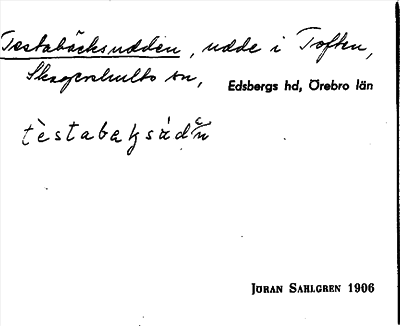 Testabäcksudden, udde i Toften,
Skagershults sn,
Edsbergs hd, Örebro län
JÖRAN SAHLGREN 1906